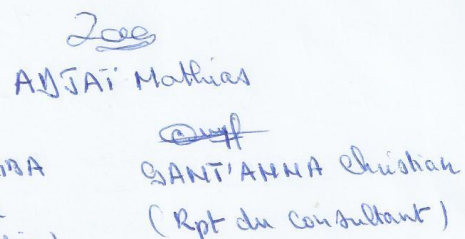 ADJAÏ Mathias
SANT'ANNA Christian
(Rpt du consultant)